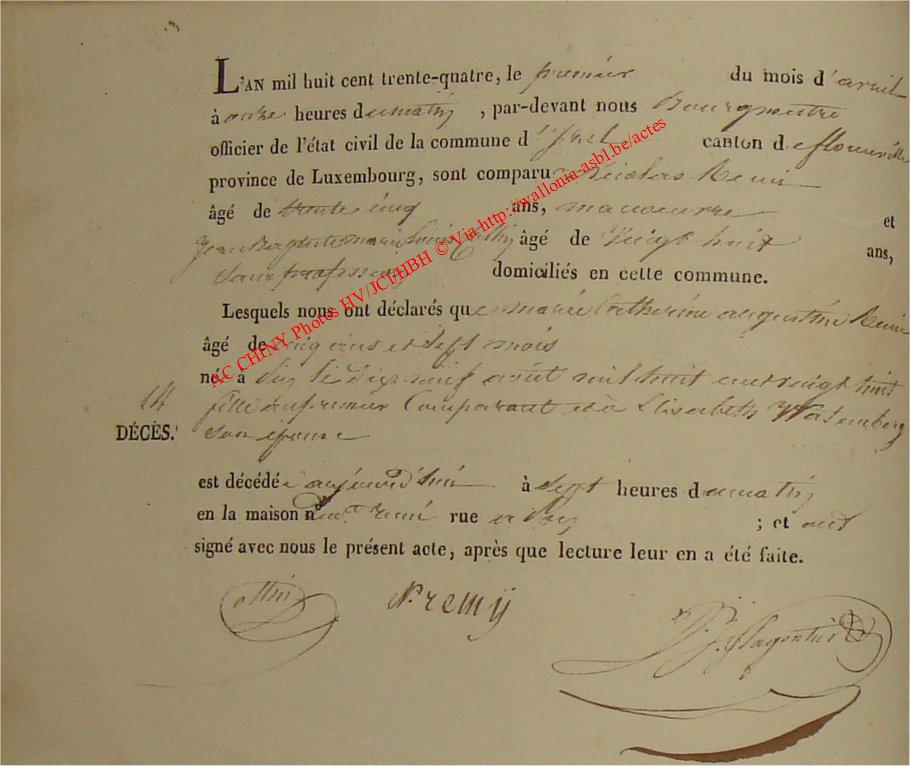 L'AN mil huit cent trente-quatre, le premier du mois d'avril
à onze heures du matin, par-devant nous Bourgmestre
officier de l'état civil de la commune d canton de florenville
province de Luxembourg, sont comparu Nicolas Remi
âgé de trente cinq ans, manoeuvre et
Jean Baptiste marie Louis âgé de vingt huit ans,
Sans profession domiciliés en cette commune.
Lesquels nous ont déclarés que marie Catherine augustine Remi
âgé de cinq ans et sept mois
né à le dix neuf août mil huit cent vingt huit
14 fille du premier Comparant et de Elisabeth Watemberg
DÉCÈS. son épouse
est décédée aujourd'hui à sept heures du matin
en la maison n° rue ; et ont
signé avec nous le présent acte, après que lecture leur en a été faite.
N. remÿ
AC CHINY Photos HV/JCH/HBH © Via http://wallonia-asbl.be/actes